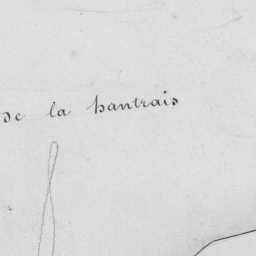 de la hantrais